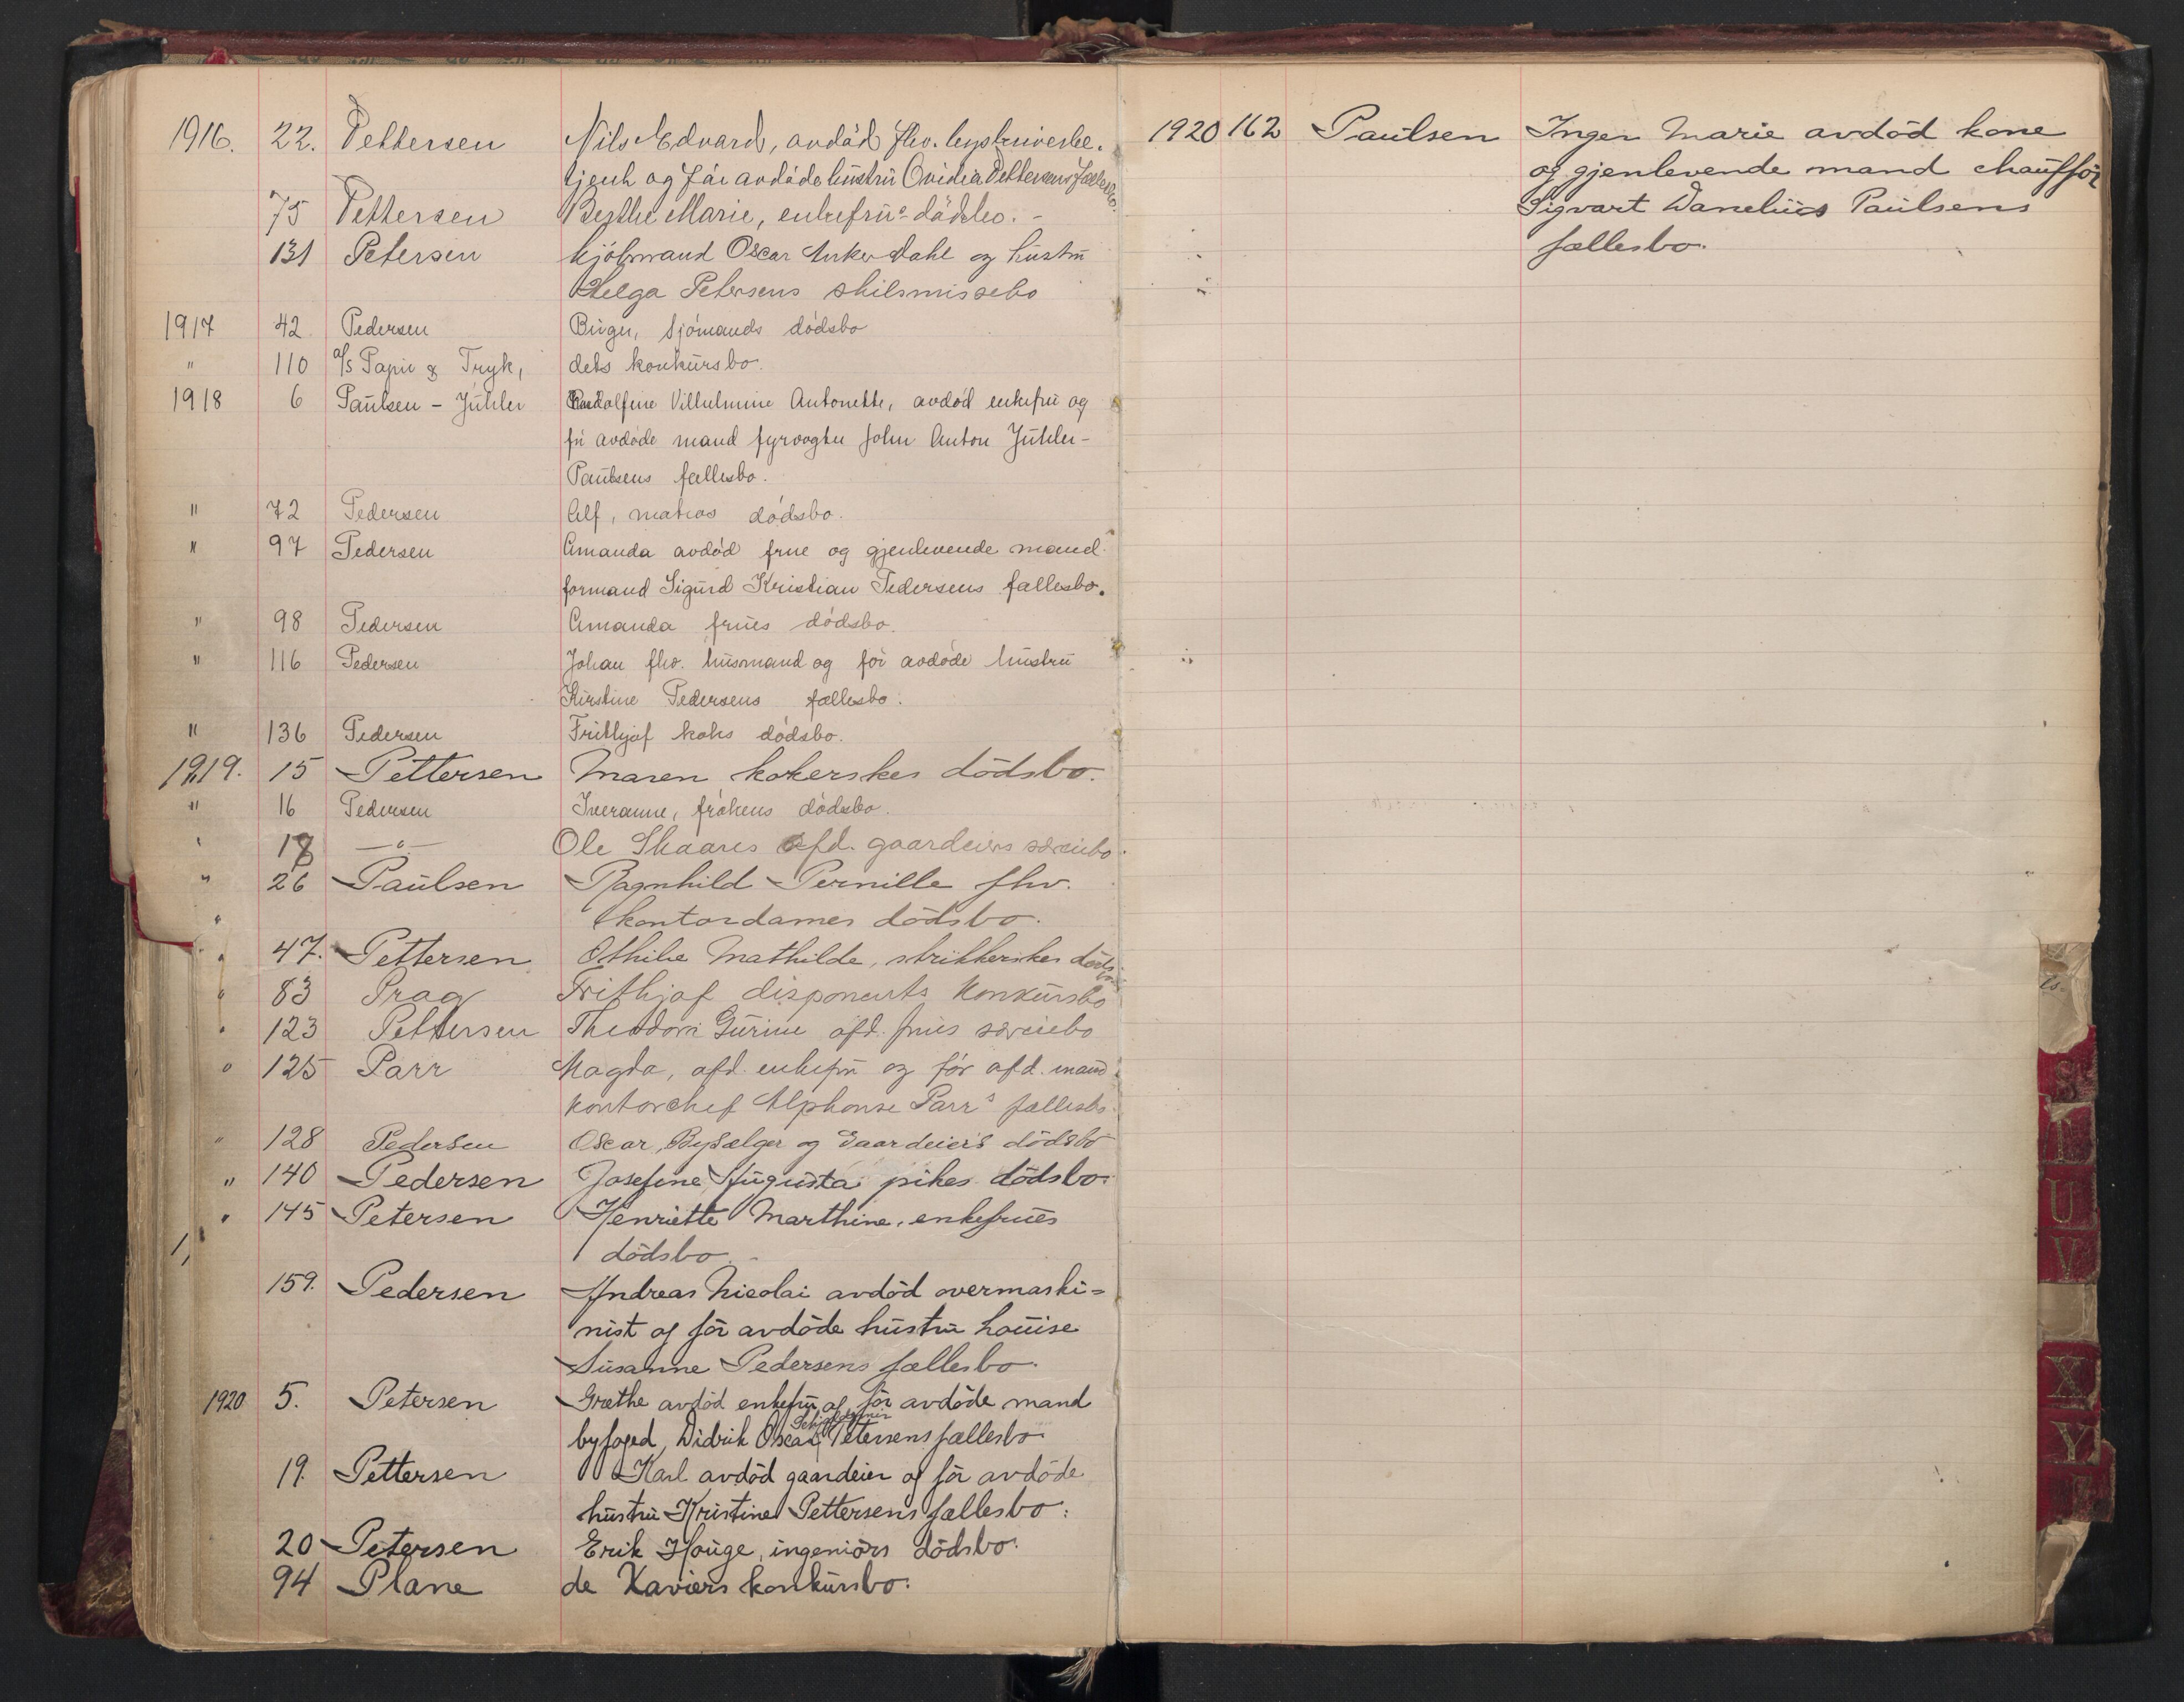 1916. 22. Pettersen Nils Edvard, avdöd fhv.
tjenh og för avdöde hustru Ovidia Pettersens fællesbo.
75 Pettersen Berthe Marie, enkefrues dödsbo. -
131 Petersen kjöbmand Oscar Anker Dahl og hustru
Helga Petersens skilsmissebo
1917 42 Pedersen Birger, Sjömands dödsbo
" 110 A/S Papir & Tryk, dets konkursbo.
1918 6 Paulsen - Juhler Rudolfine Vilhelmine Antonette, avdød enkefru og
før avdøde mand fyrvogter John Anton Juhler-
Paulsens fællesbo.
" 72 Pedersen Alf, matros dødsbo.
" 97 Pedersen Amanda avdød frue og gjenlevende mand
formand Sigurd Kristian Pedersens fællesbo.
" 98 Pedersen Amanda frues dødsbo.
" 116 Pedersen Johan fhv. husmand og før avdøde hustru
Kirstine Pedersens fællesbo.
" 136 Pedersen Frithjof koks dødsbo.
1919. 15 Pettersen Maren kokerskes dödsbo.
" 16 Pedersen Iveranne, frøkens dødsbo.
" 18 —"— Ole Skaares afd. gaardeiers særeiebo.
" 26 Paulsen Ragnhild Pernille fhv.
" kontordames dödsbo.
" 47. Pettersen Othilie Mathilde, strikkerskes dödsbo
" 83 Prag Frithjof disponents konkursbo
" 123 Pettersen Theodora Gurine afd. frues særeiebo
" 125 Parr Magda, afd. enkefru og för afd. mand
kontorchef Alphonse Parr's fællesbo.
" 128 Pedersen Oscar, Bysælger og Gaardeiers dödsbo
" 140 Pedersen Josefine Augusta pikes dödsbo.
" 145 Petersen Henriette Marthine, enkefrues
dödsbo. -
159. Pedersen Andreas Nicolai avdöd overmaski=
nist og för avdöde hustru Louise
Susanne Pedersens fællesbo.
1920 5. Petersen Grethe avdöd enkefru og för avdöde mand
byfoged, Didrik Oscar Petersens fællesbo.
19. Pettersen Karl avdöd gaardeier og för avdöde
hustru Kristine Pettersens fællesbo.
20 Petersen Erik Houge, ingeniörs dödsbo.
94 Plane de Xaviers konkursbo.
1920 162 Paulsen Inger Marie avdöd kone
og gjenlevende mand chaufför
Sigvart Danelius Paulsens
fællesbo.
S
T
U
V
X
Y